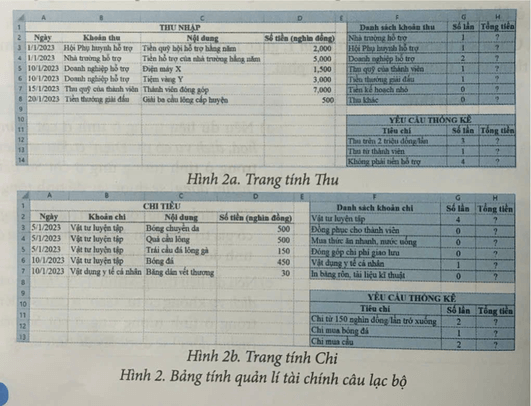 A B C D E F G H
1 THU NHẬP Danh sách khoản thu Số lần Tổng tiền
2 Ngày Khoản thu Nội dung Số tiền (nghìn đồng) Nhà trường hỗ trợ 1 ?
3 1/1/2023 Hội Phụ huynh hỗ trợ Tiền quỹ hội hỗ trợ hằng năm 2,000 Hội Phụ huynh hỗ trợ 1 ?
4 1/1/2023 Nhà trường hỗ trợ Tiền hỗ trợ của nhà trường hằng năm 5,000 Doanh nghiệp hỗ trợ 2 ?
5 10/1/2023 Doanh nghiệp hỗ trợ Điện máy X 1,500 Thu quỹ của thành viên 1 ?
6 10/1/2023 Doanh nghiệp hỗ trợ Tiệm vàng Y 3,000 Tiền thưởng giải đấu 1 ?
7 15/1/2023 Thu quỹ của thành viên Thành viên đóng góp 7,000 Tiền kế hoạch nhỏ 0 ?
8 20/1/2023 Tiền thưởng giải đấu Giải ba cầu lông cấp huyện 500 Thu khác 0 ?
9
10 YÊU CẦU THỐNG KÊ
11 Tiêu chí Số lần Tổng tiền
12 Thu trên 2 triệu đồng/lần 3 ?
13 Thu từ thành viên 1 ?
14 Không phải tiền hỗ trợ 4 ?
Hình 2a. Trang tính Thu
A B C D E F G H
1 CHI TIÊU Danh sách khoản chi Số lần Tổng tiền
2 Ngày Khoản chi Nội dung Số tiền (nghìn đồng) Vật tư luyện tập 4 ?
3 5/1/2023 Vật tư luyện tập Bóng chuyền da 500 Đồng phục cho thành viên 0 ?
4 5/1/2023 Vật tư luyện tập Quả cầu lông 500 Mua thức ăn nhanh, nước uống 0 ?
5 5/1/2023 Vật tư luyện tập Trái cầu đá lông gà 150 Đóng góp chi phí giao lưu 0 ?
6 10/1/2023 Vật tư luyện tập Bóng đá 450 Vật dụng y tế cá nhân 1 ?
7 10/1/2023 Vật dụng y tế cá nhân Băng dán vết thương 30 In băng rôn, tài liệu kĩ thuật 0 ?
8
9
10 YÊU CẦU THỐNG KÊ
11 Tiêu chí Số lần Tổng tiền
11 Chi từ 150 nghìn đồng/lần trở xuống 2 ?
12 Chi mua bóng đá 1 ?
13 Chi mua cầu 2 ?
Hình 2b. Trang tính Chi
Hình 2. Bảng tính quản lí tài chính câu lạc bộ